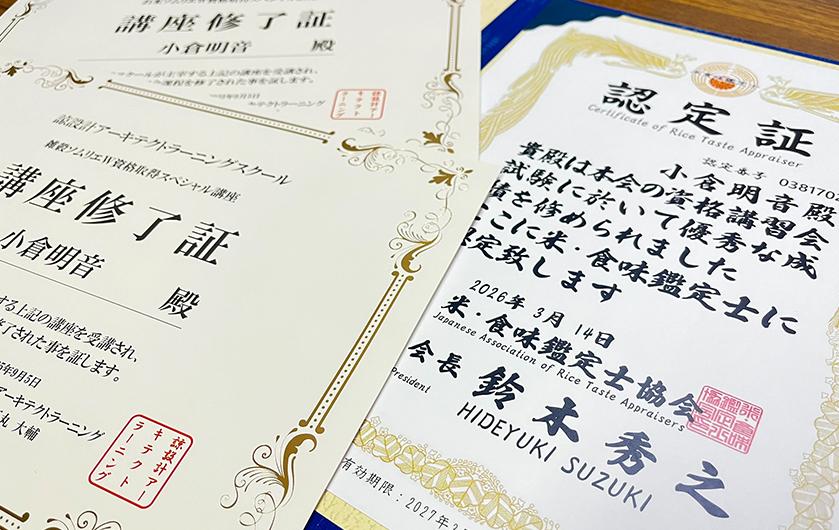 講座修了証
小倉明音 殿
スクールが主宰する上記の講座を受講され、
課程を修了された事を証します。
年9月5日
キテクトラーニング
諒設計アー
キテクト
ラーニング
諒設計アーキテクトラーニングスクール
雑穀ソムリエW資格取得スペシャル講座
講座修了証
小倉明音 殿
する上記の講座を受講され、
了された事を証します。
5年9月5日
アーキテクトラーニング
丸 大輔
諒設計アー
キテクト
ラーニング
認定証
Certificate of Rice Taste Appraiser
認定番号 0381702
小倉明音殿
貴殿は本会の資格講習会
試験に於いて優秀な成
績を修められました
ここに米・食味鑑定士に
認定致します
2026年 3月 14日
米・食味鑑定士協会
Japanese Association of Rice Taste Appraisers
会長 鈴木秀之
President
HIDEYUKI SUZUKI
有効期限:2027年